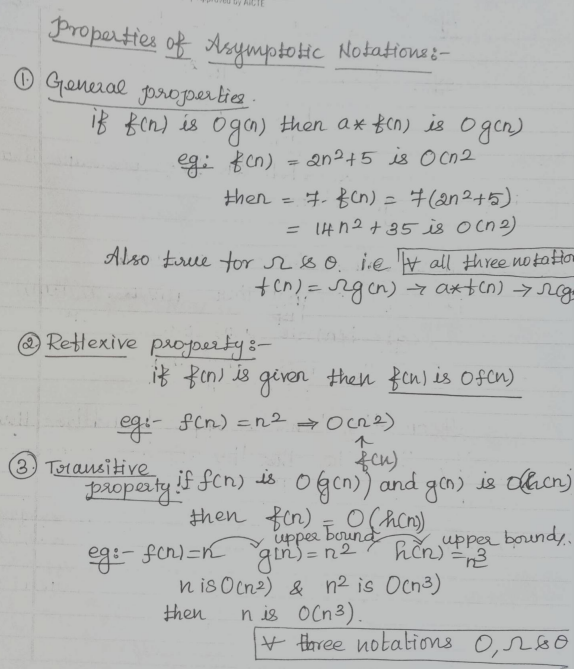 by AICTE
Properties of Asymptotic Notations:-
① General properties.
if f(n) is Og(n) then a* f(n) is Og(n)
eg: f(n) = 2n²+5 is O(n2
then = 7. f(n) = 7(2n²+5)
= 14n²+35 is O(n2)
Also true for Ω & θ. i.e ∀ all three notation
f(n) = Ωg(n) → a*f(n) → Ω(g
② Reflexive property:-
if f(n) is given then f(n) is Of(n)
eg:- f(n) = n2 ⇒ O(n2)
↑
f(n)
③ Transitive property: if f(n) is O(g(n)) and g(n) is O(h(n)
then f(n) = O(h(n))
upper bound upper bound
eg:- f(n)=n g(n)=n² h(n)=n³
n is O(n2) & n² is O(n3)
then n is O(n3).
∀ three notations O, Ω & θ